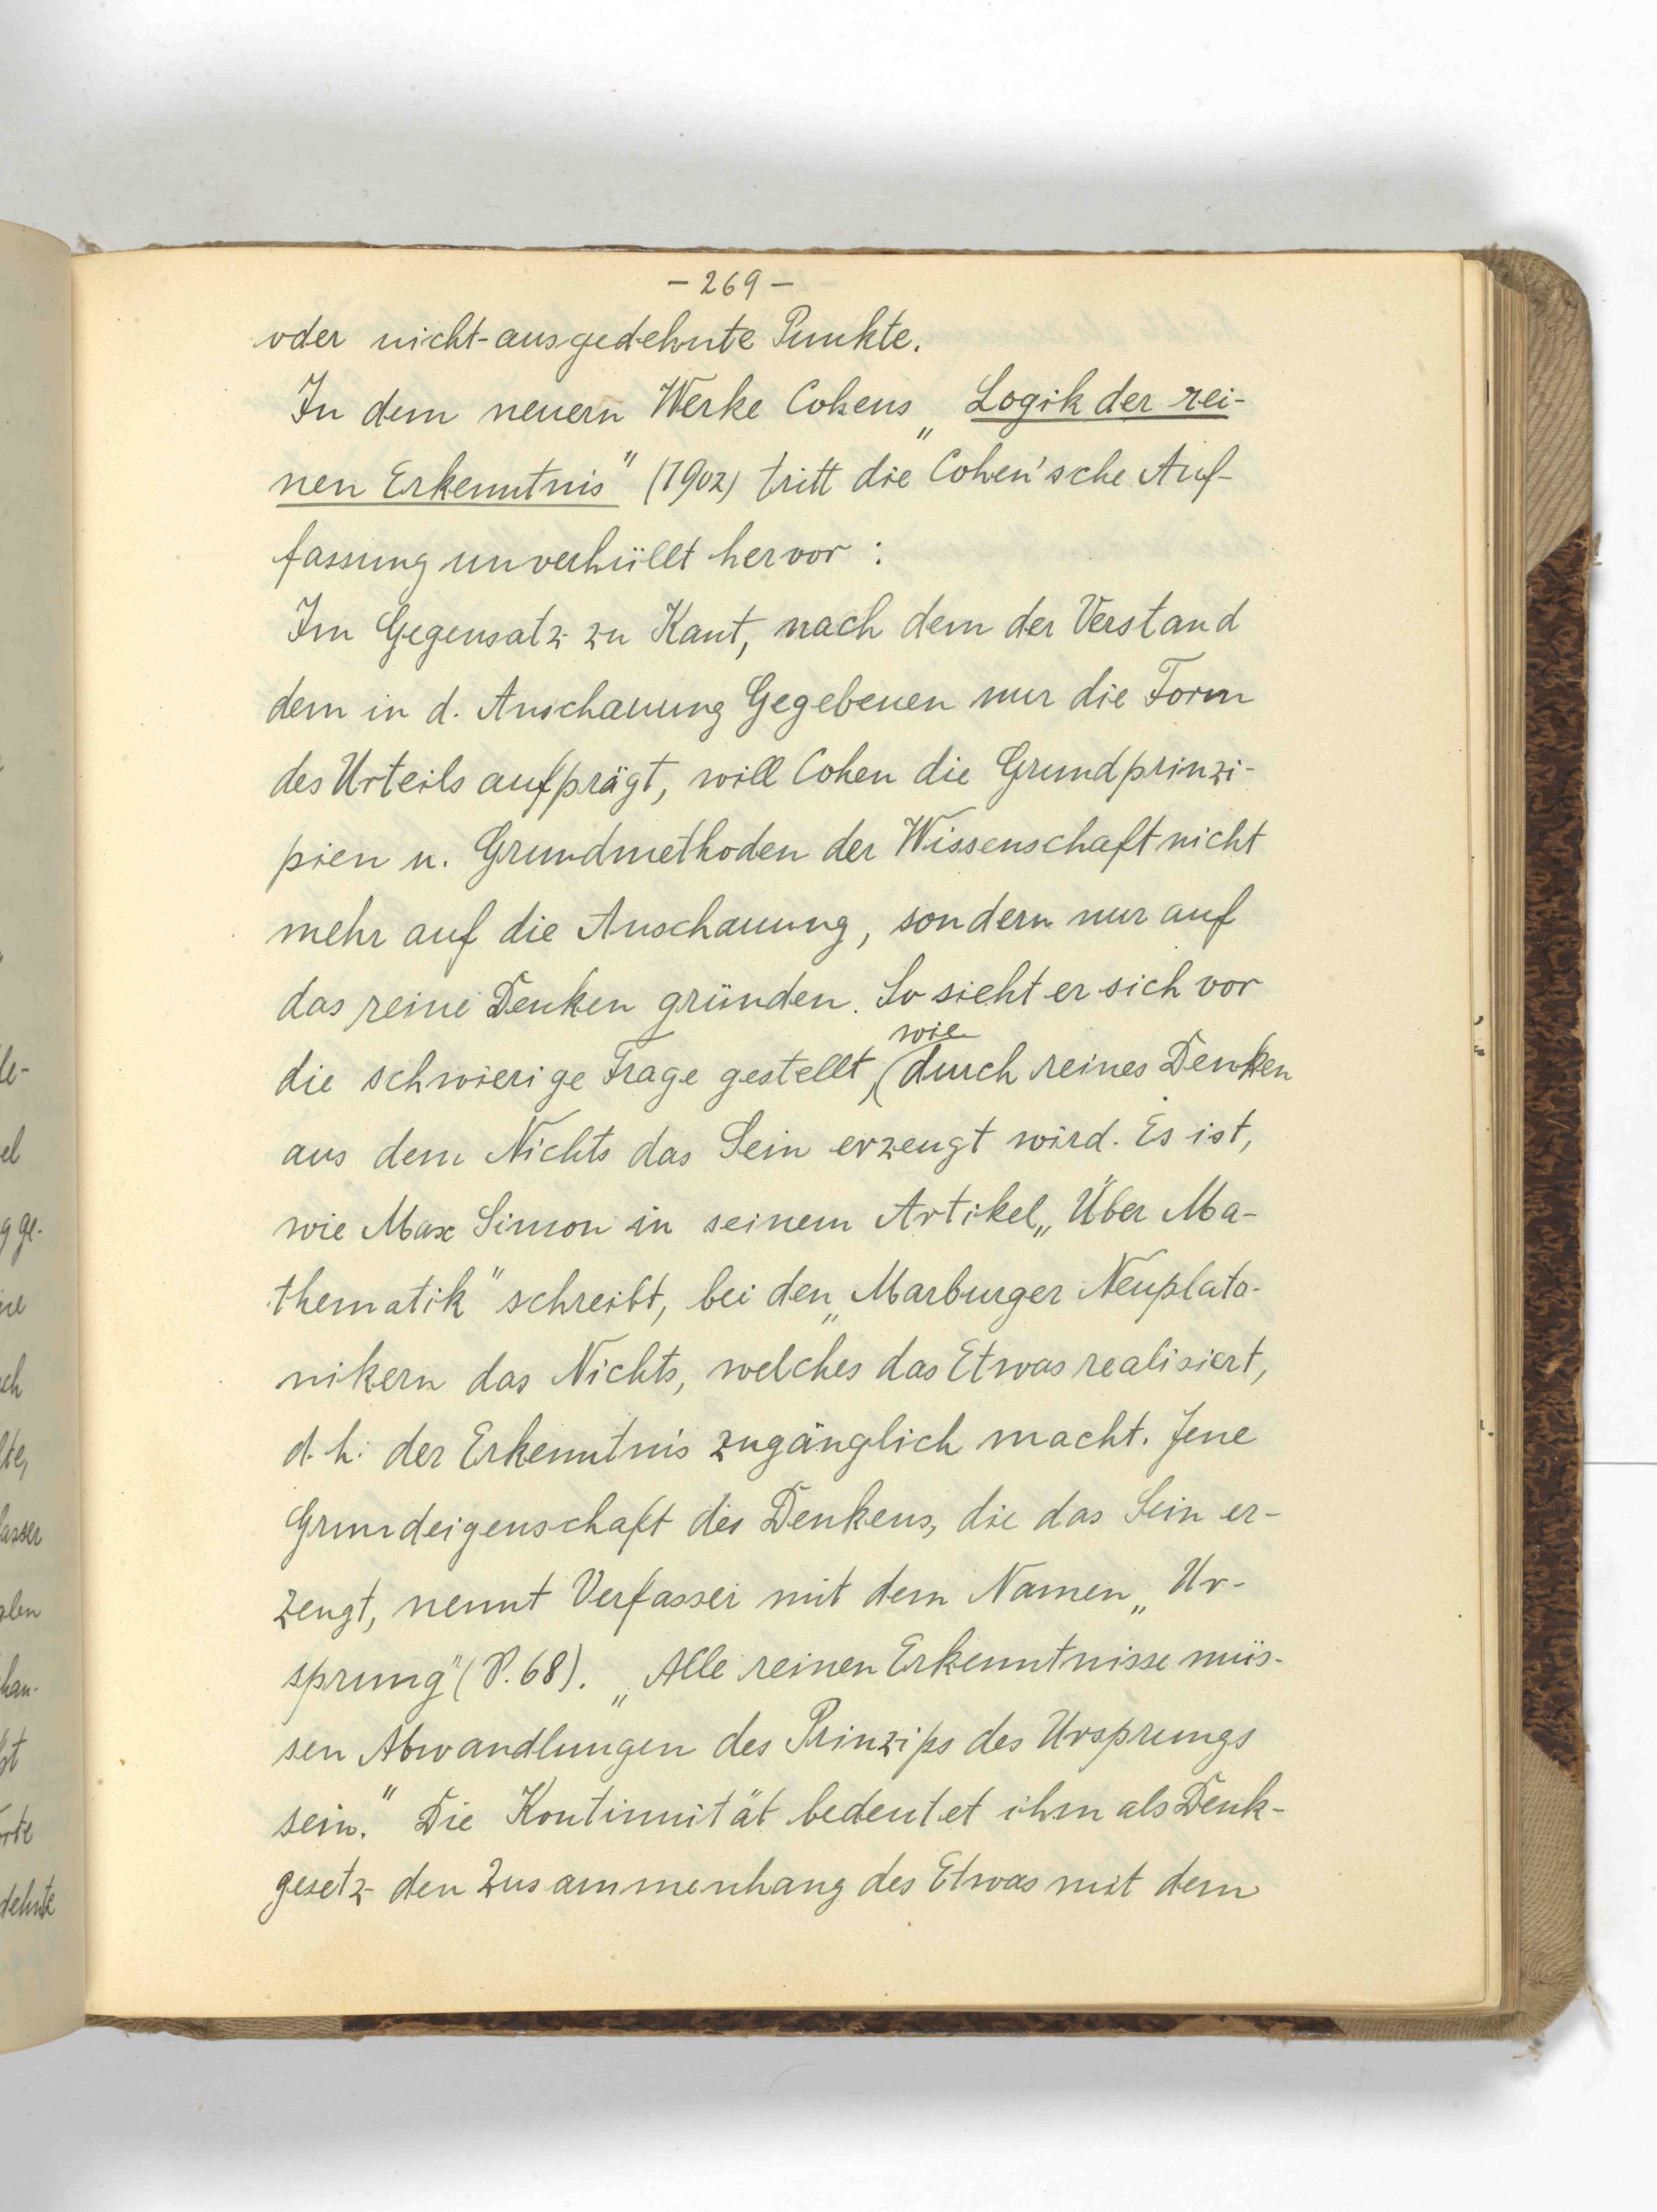 - 269 -
oder nicht-ausgedehnte Punkte.
In dem neuern Werke Cohens „Logik der rei-
nen Erkenntnis" (1902) tritt die Cohen'sche Auf-
fassung unverhüllt hervor:
Im Gegensatz zu Kant, nach dem der Verstand
dem in d. Anschauung Gegebenen nur die Form
des Urteils aufprägt, will Cohen die Grundprinzi-
pien u. Grundmethoden der Wissenschaft nicht
mehr auf die Anschauung, sondern nur auf
das reine Denken gründen. So sieht er sich vor
die schwierige Frage gestellt, wie durch reines Denken
aus dem Nichts das Sein erzeugt wird. Es ist,
wie Max Simon in seinem Artikel „Über Ma-
thematik" schreibt, bei den „Marburger Neuplato-
nikern das Nichts, welches das Etwas realisiert,
d. h. der Erkenntnis zugänglich macht. Jene
Grundeigenschaft des Denkens, die das Sein er-
zeugt, nennt Verfasser mit dem Namen „Ur-
sprung" (P. 68). „Alle reinen Erkenntnisse müs-
sen Abwandlungen des Prinzips des Ursprungs
sein." Die Kontinuität bedeutet ihm als Denk-
gesetz den Zusammenhang des Etwas mit dem